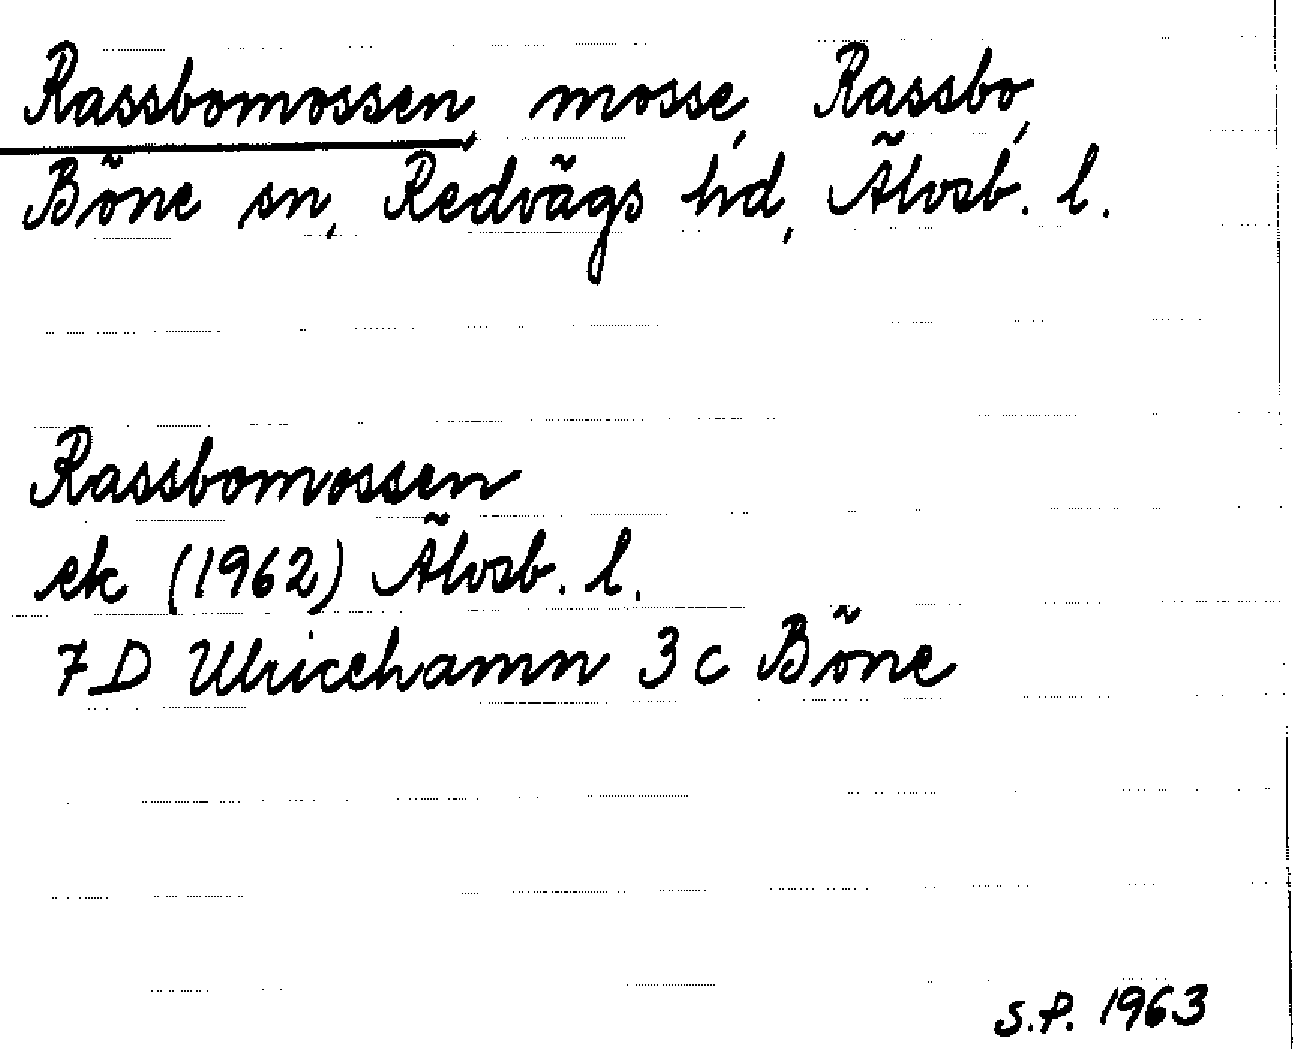 Rassbomossen, mosse, Rassbo,
Böne sn, Redvägs hd, Älvsb. l.
Rassbomossen
ek (1962) Älvsb. l.
7 D Ulricehamn 3 c Böne
S.P. 1963